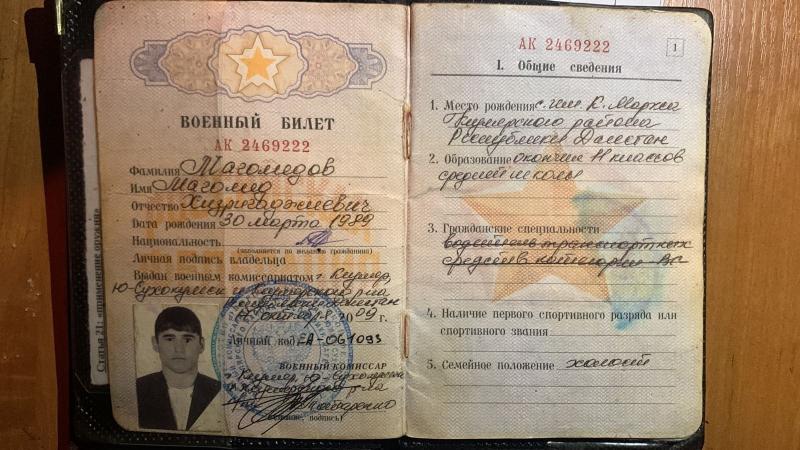 ВОЕННЫЙ БИЛЕТ
АК 2469222
Фамилия Магомедов
Имя Магомед
Отчество Хизригаджиевич
Дата рождения 30 марта 1989
Национальность
(заполняется по желанию гражданина)
Личная подпись владельца
Выдан военным комиссариатом г. Кизляр,
Ю-Сухокумск и Кизлярского р-на
Республики Дагестан
октября 2009 г.
Личный код ЕА-061093
ВОЕННЫЙ КОМИССАР
г. Кизляр, Ю-Сухокумска
и Кизлярского р-на
Статья 21: «применение оружия»
АК 2469222
1
I. Общие сведения
1. Место рождения с. им. К. Маркса
Кизлярского района
Республики Дагестан
2. Образование окончил 11 классов
средней школы
3. Гражданские специальности
водитель транспортных
средств категории ВС
4. Наличие первого спортивного разряда или
спортивного звания
5. Семейное положение холост